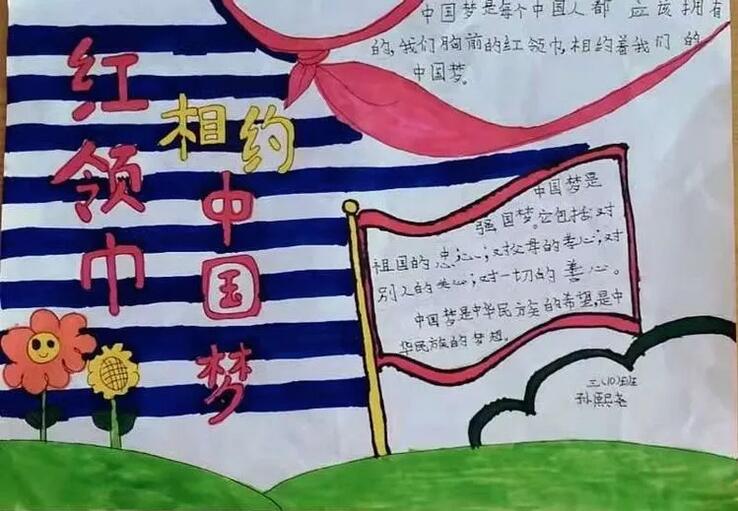 红领巾
相约
中国梦
中国梦是每个中国人都应该拥有
的,我们胸前的红领巾,相约着我们的
中国梦。
中国梦是
强国梦。它包括对
祖国的忠心;对父母的孝心;对
别人的关心;对一切的善心。
中国梦是中华民族的希望,是中
华民族的梦想。
三(10)班
孙熙